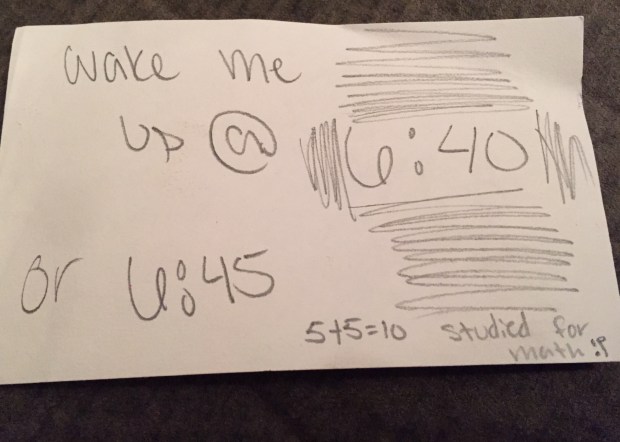 wake me
up @ 6:40
or 6:45
5+5=10 studied for
math :P